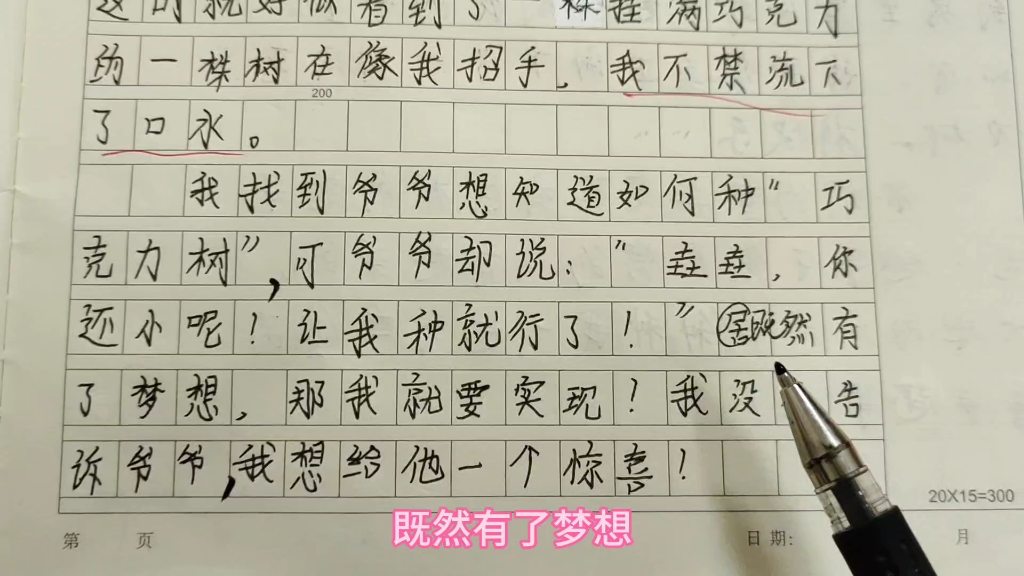 这时就好似看到了一株挂满巧克力
的一株树在像我招手,我不禁流下
200
了口水。
我找到爷爷想知道如何种“巧
克力树”,可爷爷却说:“垚垚,你
还小呢!让我种就行了!”既然有
了梦想,那我就要实现!我没告
诉爷爷,我想给他一个惊喜!
20X15=300
既然有了梦想
第 页 日期: 月